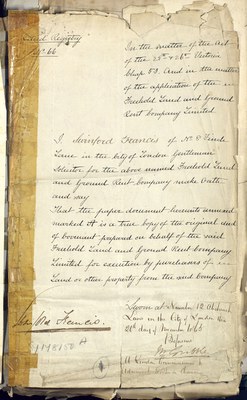 Land Registry
No. 66
In the matter of the Act
of the 25th & 26th Victoria
Chap 53 And in the matter
of the application of the
Freehold Land and Ground
Rent Company Limited
I Stanford Frances of No.
Lane in the City of London Gentleman
Solicitor for the above named Freehold Land
and Ground Rent Company make Oath
and say
That the paper document hereunto annexed
marked A is a true copy of the original deed
of Covenant prepared on behalf of the said
Freehold Land and Ground Rent Company
Limited for execution by purchasers of
Land or other property from the said Company
Sworn at Number 10
Lane in the City of London this
day of November
Before me
A London Commissioner to
administer Oaths in